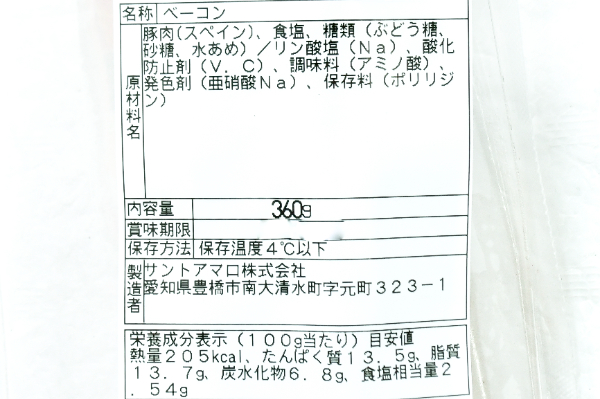 名称 ベーコン
原材料名 豚肉(スペイン)、食塩、糖類（ぶどう糖、
砂糖、水あめ）／リン酸塩（Ｎａ）、酸化
防止剤（Ｖ．Ｃ）、調味料（アミノ酸）、
発色剤（亜硝酸Ｎａ）、保存料（ポリリジ
ン）
内容量 360g
賞味期限
保存方法 保存温度４℃以下
製造者 サントアマロ株式会社
愛知県豊橋市南大清水町字元町３２３－１
栄養成分表示（１００g当たり）目安値
熱量２０５kcal、たんぱく質１３．５g、脂質
１３．７g、炭水化物６．８g、食塩相当量２
．５４g